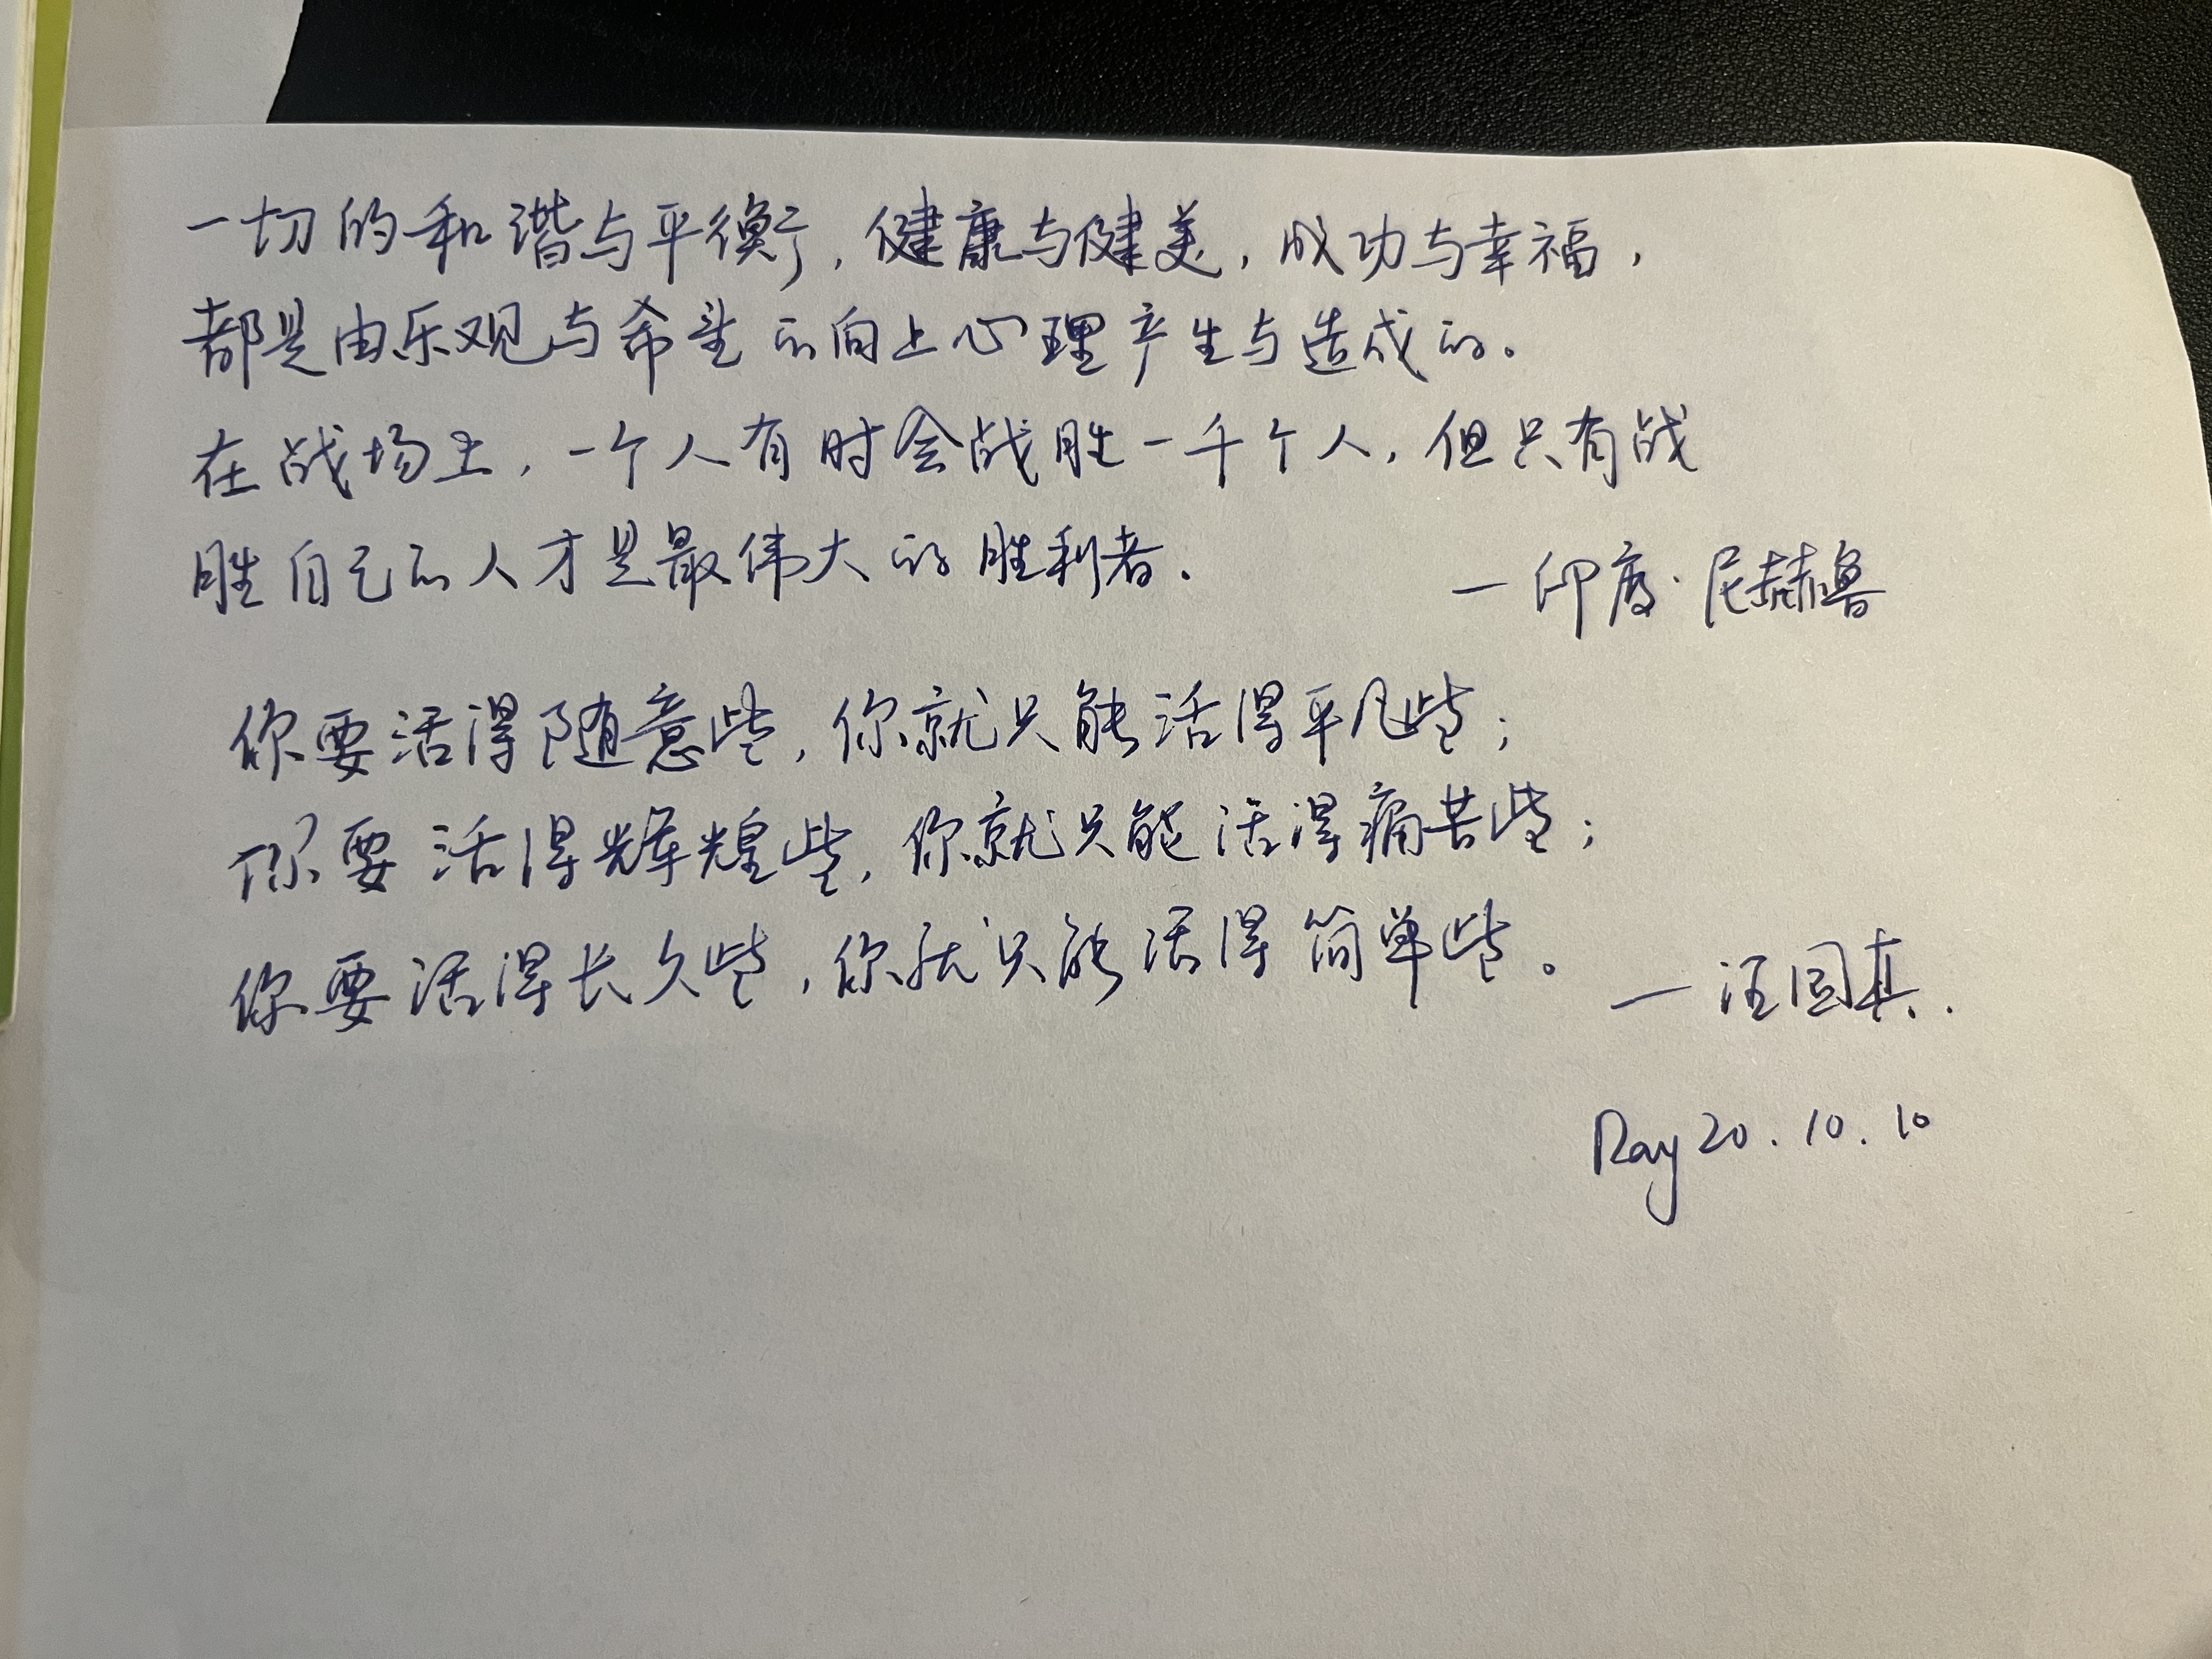 一切的和谐与平衡，健康与健美，成功与幸福，
都是由乐观与希望的向上心理产生与造成的。
在战场上，一个人有时会战胜一千个人，但只有战
胜自己的人才是最伟大的胜利者。
一印度·尼赫鲁
你要活得随意些，你就只能活得平凡些；
你要活得辉煌些，你就只能活得痛苦些；
你要活得长久些，你就只能活得简单些。
一汪国真.
Ray 20.10.10